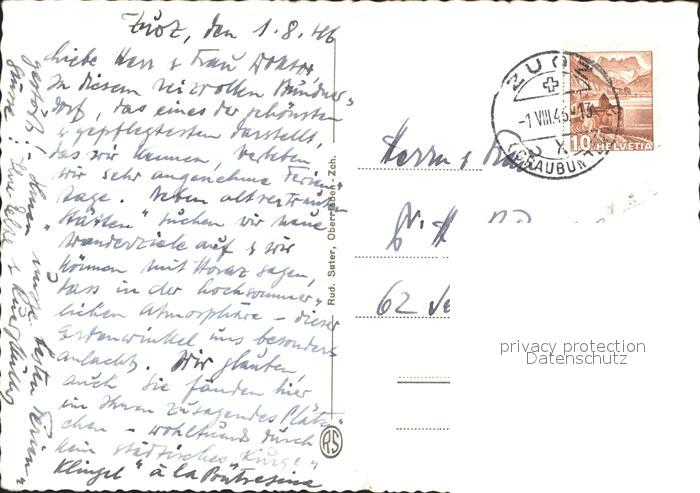 Zuoz, den 1.8.46
Liebe Herr & Frau Doktor,
In diesem reizvollen Bündner-
dorf, das eines der schönsten
& gepflegtesten darstellt,
das wir kennen, verleben
wir sehr angenehme Ferien-
tage. Neben altvertrauten
"Stätten" suchen wir neue
Wanderziele auf & wir
können mit Horaz sagen,
dass in der hochsommer-
lichen Atmosphäre – dieser
Erdenwinkel uns besonders
anlacht. Wir glauben,
auch Sie fänden hier
ein Ihnen zusagendes Plätz-
chen – wohltuend durch
kein städtisches "Kurge-
Klingel" à la Pontresina
gestört! – Ihnen
besten Ferien-
Grüsse! Ihre
Rud. Suter, Oberrieden-Zch.
RS
ZUOZ
-1 VIII.46-13
(GRAUBÜNDEN)
10 HELVETIA
Herrn &
62
privacy protection
Datenschutz